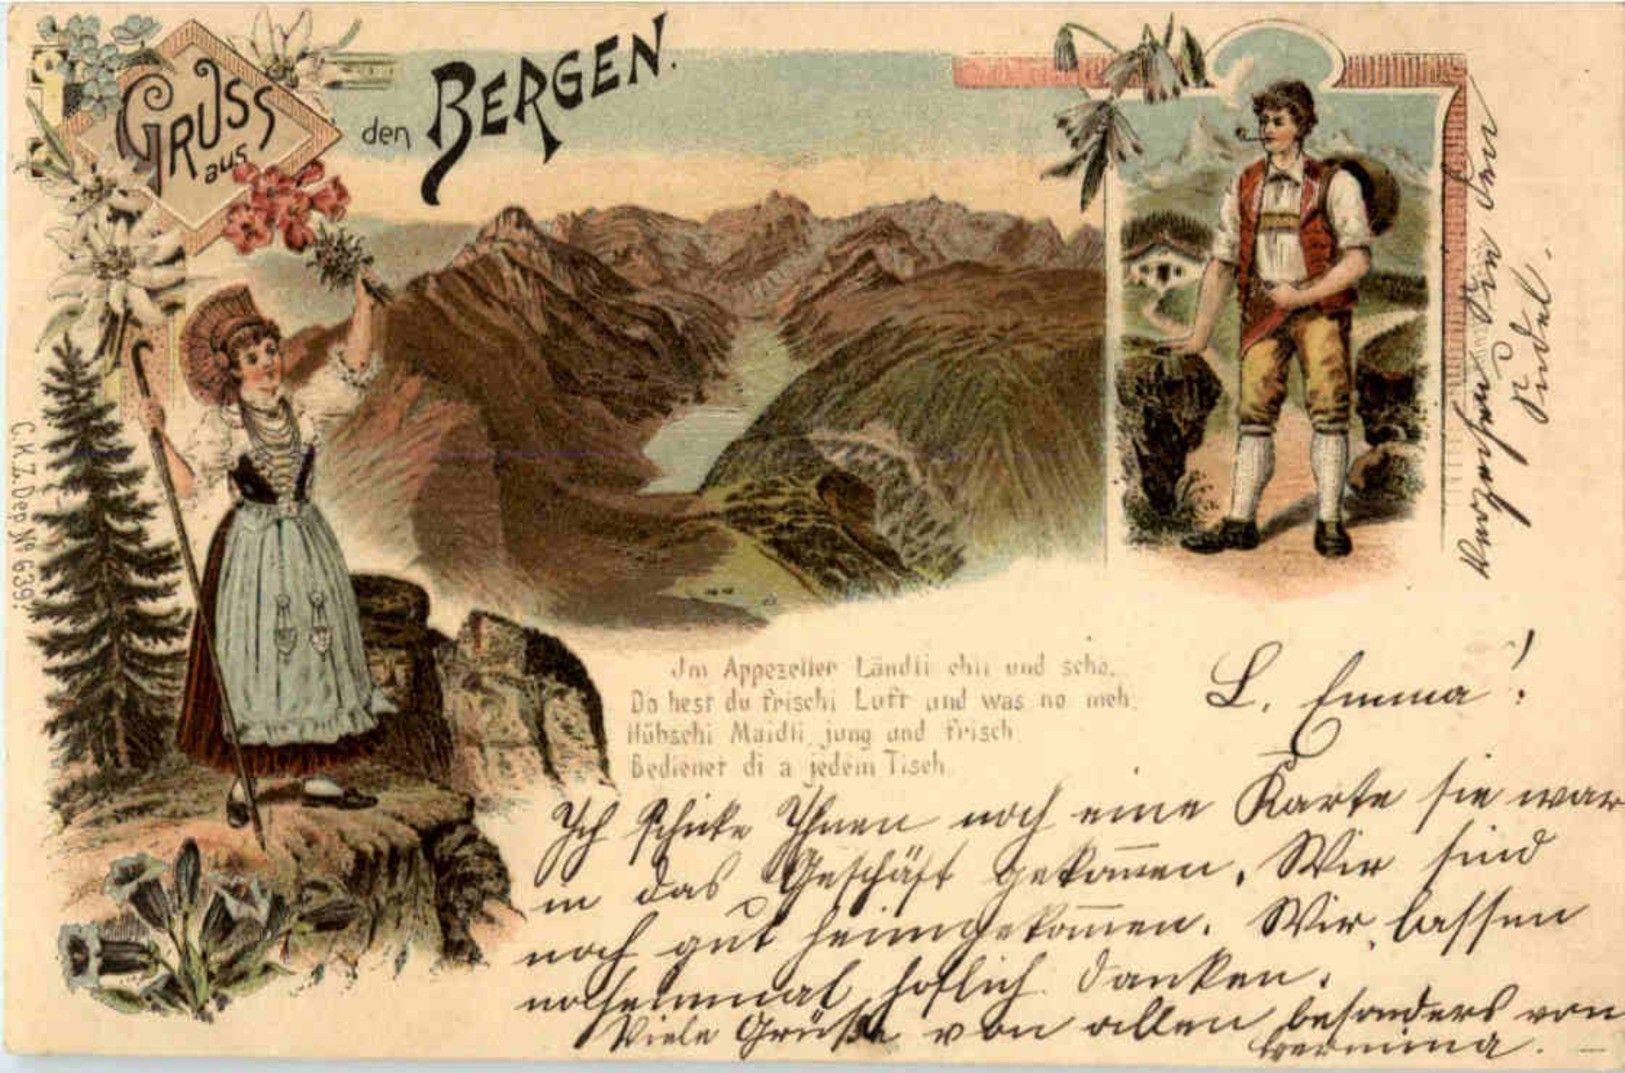 GRUSS
aus
den BERGEN.
C.K.Z. Dep. Nº 639.
Im Appezeller Ländli ehii und scho.
Do hest du frischi Luft und was no meh.
Hübschi Maidli jung und frisch
Bedienet di a jedem Tisch
L. Emma!
Ich schicke Ihnen noch eine Karte sie war
in das Geschäft gekom̄en. Wir sind
noch gut heimgekom̄en. Wir lassen
nocheinmal höflich danken.
Viele Grüße von allen besonders von
Hermina.
Verzeihen Sie den
Sudel.